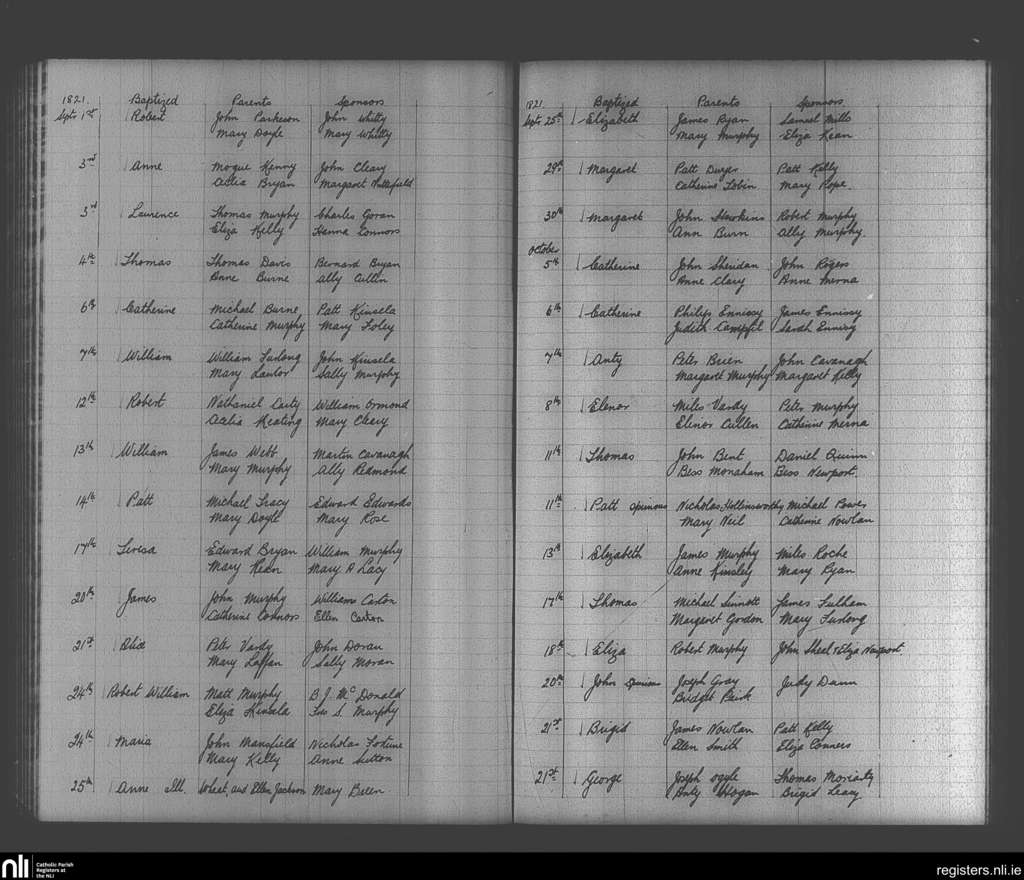 1821. Baptized Parents Sponsors
Septr 1st Robert John Parkeson John Whitty
Mary Doyle Mary Whitty
3rd Anne Mogue Kenny John Cleary
Bryan Margaret
3rd Laurence Thomas Murphy Charles Goran
Eliza Kelly Hanna Connors
4th Thomas Thomas Davis Bernard Bryan
Anne Burne Ally Cullin
6th Catherine Michael Burne Patt Kinsela
Catherine Murphy Mary Foley
7th William William Furlong John Kinsela
Mary Lawlor Sally Murphy
12th Robert Nathaniel Carty William Ormond
Keating Mary Cleary
13th William James Webb Martin Cavanagh
Mary Murphy Ally Redmond
14th Patt Michael Tracy Edward Edwards
Mary Doyle Mary Rose
17th Teresa Edward Bryan William Murphy
Mary Kean Mary A Lacy
20th James John Murphy William Carton
Catherine Connors Ellen Carton
21st Peter Vardy John Doran
Mary Laffan Sally Moran
24th Robert William Matt Murphy B. J. McDonald
Eliza Kinsela S. Murphy
24th Maria John Mansfield Nicholas Fortune
Mary Kelly Anne Sutton
25th Anne Ill. Wheat, and Ellen Jackson Mary Breen
1821. Baptized Parents Sponsors
Septr 25th Elizabeth James Ryan Samuel Mills
Mary Murphy Eliza Kean
29th Margaret Patt Dwyer Patt Kelly
Catherine Tobin Mary Pope.
30th Margaret John Hawkins Robert Murphy
Ann Burn Ally Murphy.
October
5th Catherine John Sheridan John Rogers
Anne Clary Anne Merna
6th Catherine Philip Ennissy James Ennissy
Judith Sarah Ennissy
7th Anty Peter Brien John Cavanagh
Margaret Murphy Margaret Kelly
8th Elenor Miles Vardy Peter Murphy
Elenor Cullen Catherine Merna
11th Thomas John Bent Daniel Quinn
Bess Monaham Bess Newport.
11th Patt spurious Nicholas Hollinsworthy Michael Power
Mary Neil Catherine Nowlan
13th Elizabeth James Murphy Miles Roche
Anne Kinsley Mary Ryan
17th Thomas Michael Sinnott James Fulham
Margaret Gordon Mary Furlong
18th Eliza Robert Murphy John Sheal & Eliza Newport.
20th John spurious Joseph Gray Judy Dunn
Bridget
21st Brigid James Nowlan Patt Kelly
Ellen Smith Eliza Conners
21st George Joseph Ogyle Thomas Moriarty
Anty Hogan Brigid Leary
nli Catholic Parish
Registers at
the NLI
registers.nli.ie